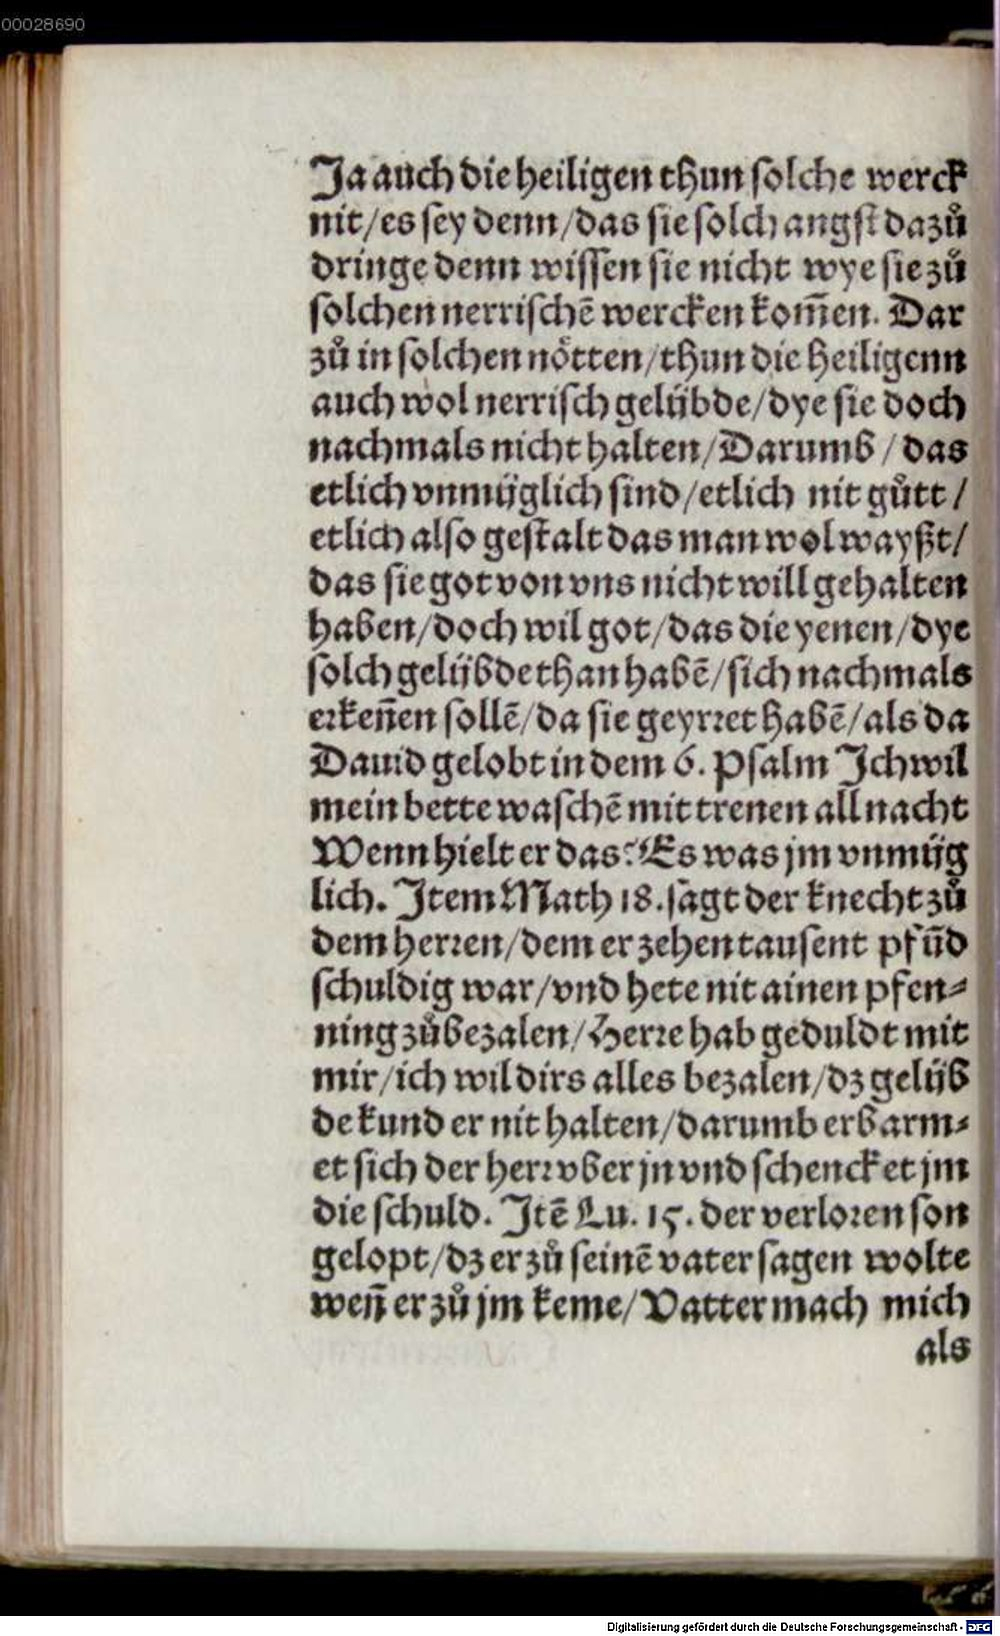 00028690
Ja auch die heiligen thun ſolche werck
nit/es ſey denn/das ſie ſolch angſt dazuͦ
dringe denn wiſſen ſie nicht wye ſie zuͦ
ſolchen nerriſchē wercken kom̄en. Dar
zuͦ in ſolchen noͤtten/thun die heiligenn
auch wol nerriſch gelübde/dye ſie doch
nachmals nicht halten/Darumb / das
etlich vnmüglich ſind/etlich nit guͦtt /
etlich alſo geſtalt das man wol wayßt/
das ſie got von vns nicht will gehalten
haben/doch wil got/das die yenen/dye
ſolch gelübde than habē/ſich nachmals
erkeñen ſollē/da ſie geyrret habē/als da
Dauid gelobt in dem 6. Pſalm Jch wil
mein bette waſchē mit trenen all nacht
Wenn hielt er das? Es was jm vnmüg
lich. Jtem Math 18. ſagt der knecht zuͦ
dem herren/dem er zehen tauſent pfūd
ſchuldig war/vnd hete nit ainen pfen⸗
ning zuͦbezalen/Herre hab geduldt mit
mir/ich wil dirs alles bezalen/dz gelüb
de kund er nit halten/darumb erbarm⸗
et ſich der herr vber jn vnd ſchencket jm
die ſchuld. Jtē Lu. 15. der verloren ſon
gelopt/dz er zuͦ ſeinē vater ſagen wolte
weñ er zuͦ jm keme/Vatter mach mich
als
Digitalisierung gefördert durch die Deutsche Forschungsgemeinschaft - DFG